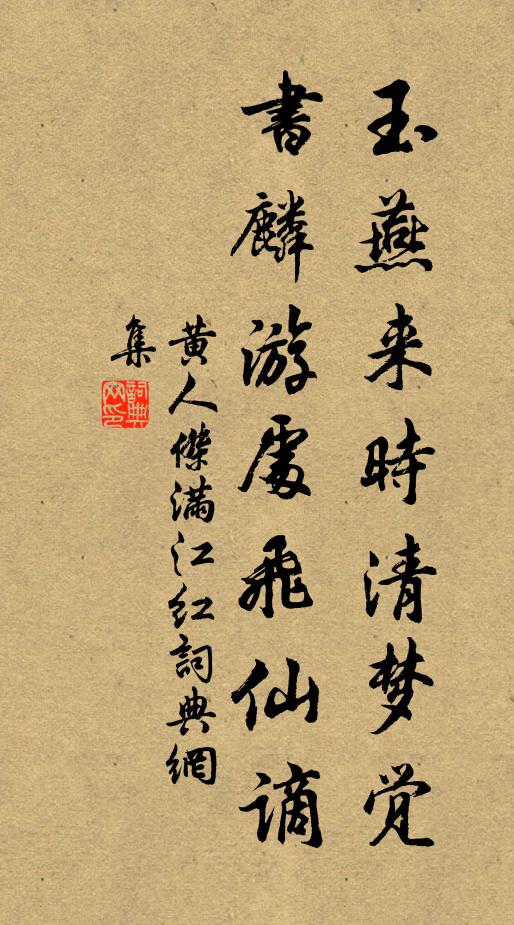 玉燕来時清梦觉
書麟游處飛仙谪
黄人傑满江红詞典網
集
詞典
网印